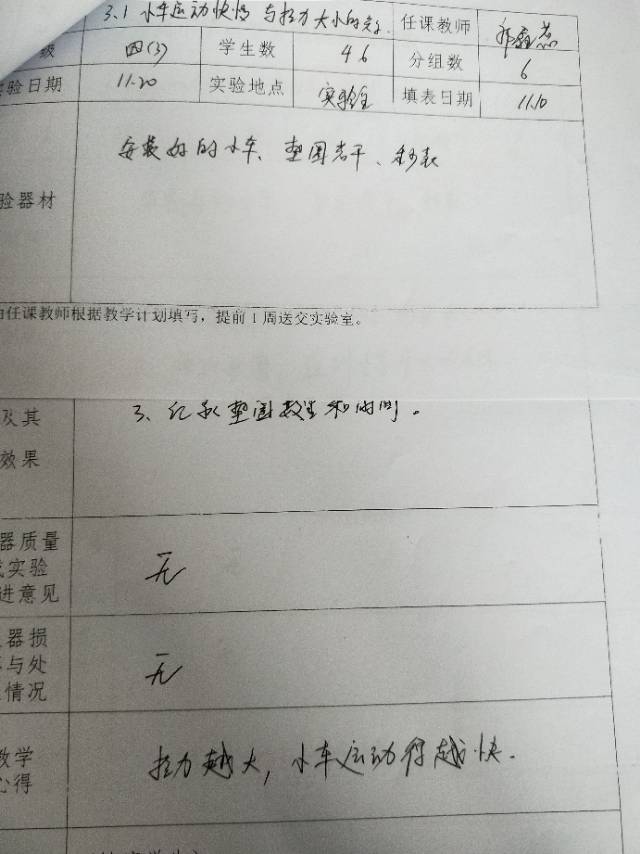 3.1 小车运动快慢与拉力大小的关系 任课教师
级 四(3) 学生数 46 分组数 6
验日期 11.20 实验地点 实验室 填表日期 11.10
安装好的小车、垫圈若干、秒表
验器材
由任课教师根据教学计划填写，提前1周送交实验室。
及其 3、记录垫圈数量和时间。
效果
器质量
实验 无
进意见
器损
与处 无
情况
教学 拉力越大，小车运动得越快.
心得